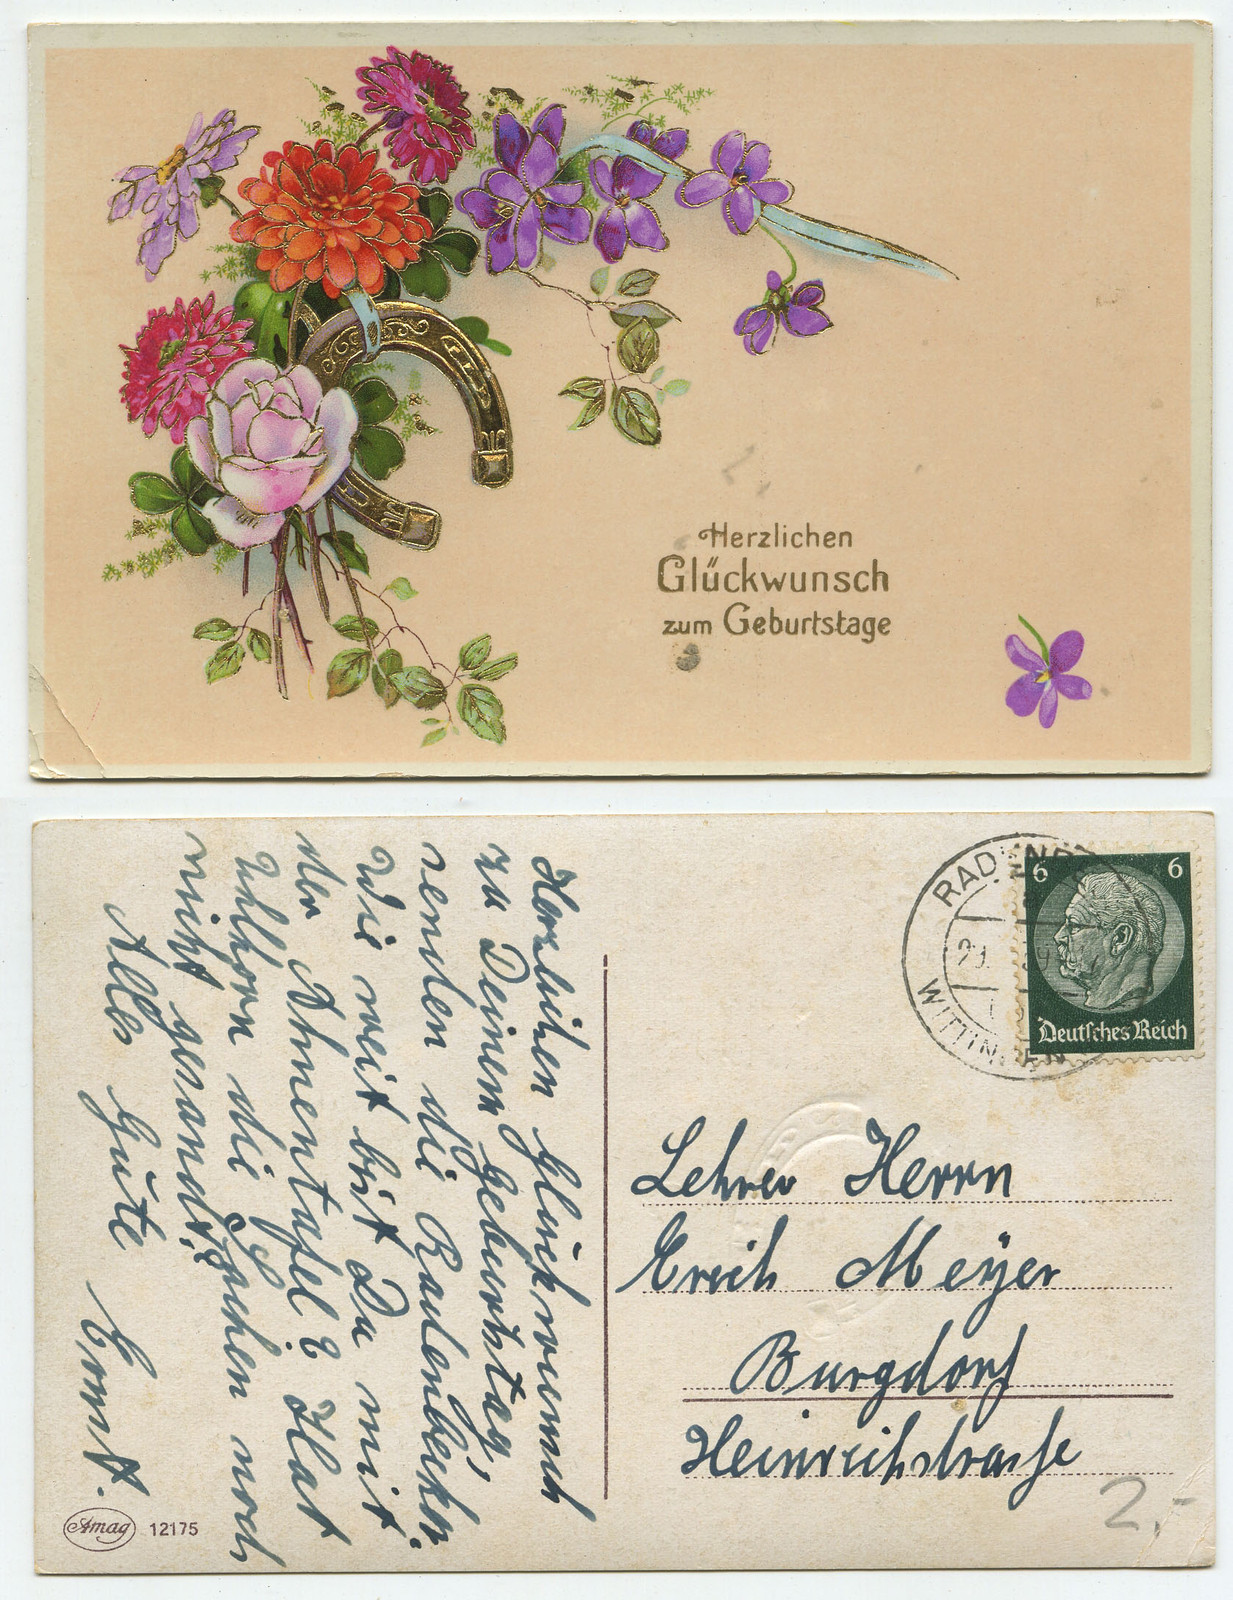 Herzlichen
Glückwunsch
zum Geburtstage
Herzlichen Glückwunsch
zu Deinem Geburtstag,
senden die Rautenbecks.
Wie weit bist Du mit
der Ahnentafel? Hat
Ullhorn die Sachen noch
nicht gesandt?
Alles Gute Ernst.
Amag 12175
WITTINGEN
6 6
Deutsches Reich
Lehrer Herrn
Erich Meyer
Burgdorf
Heinrichstrasse
2,-